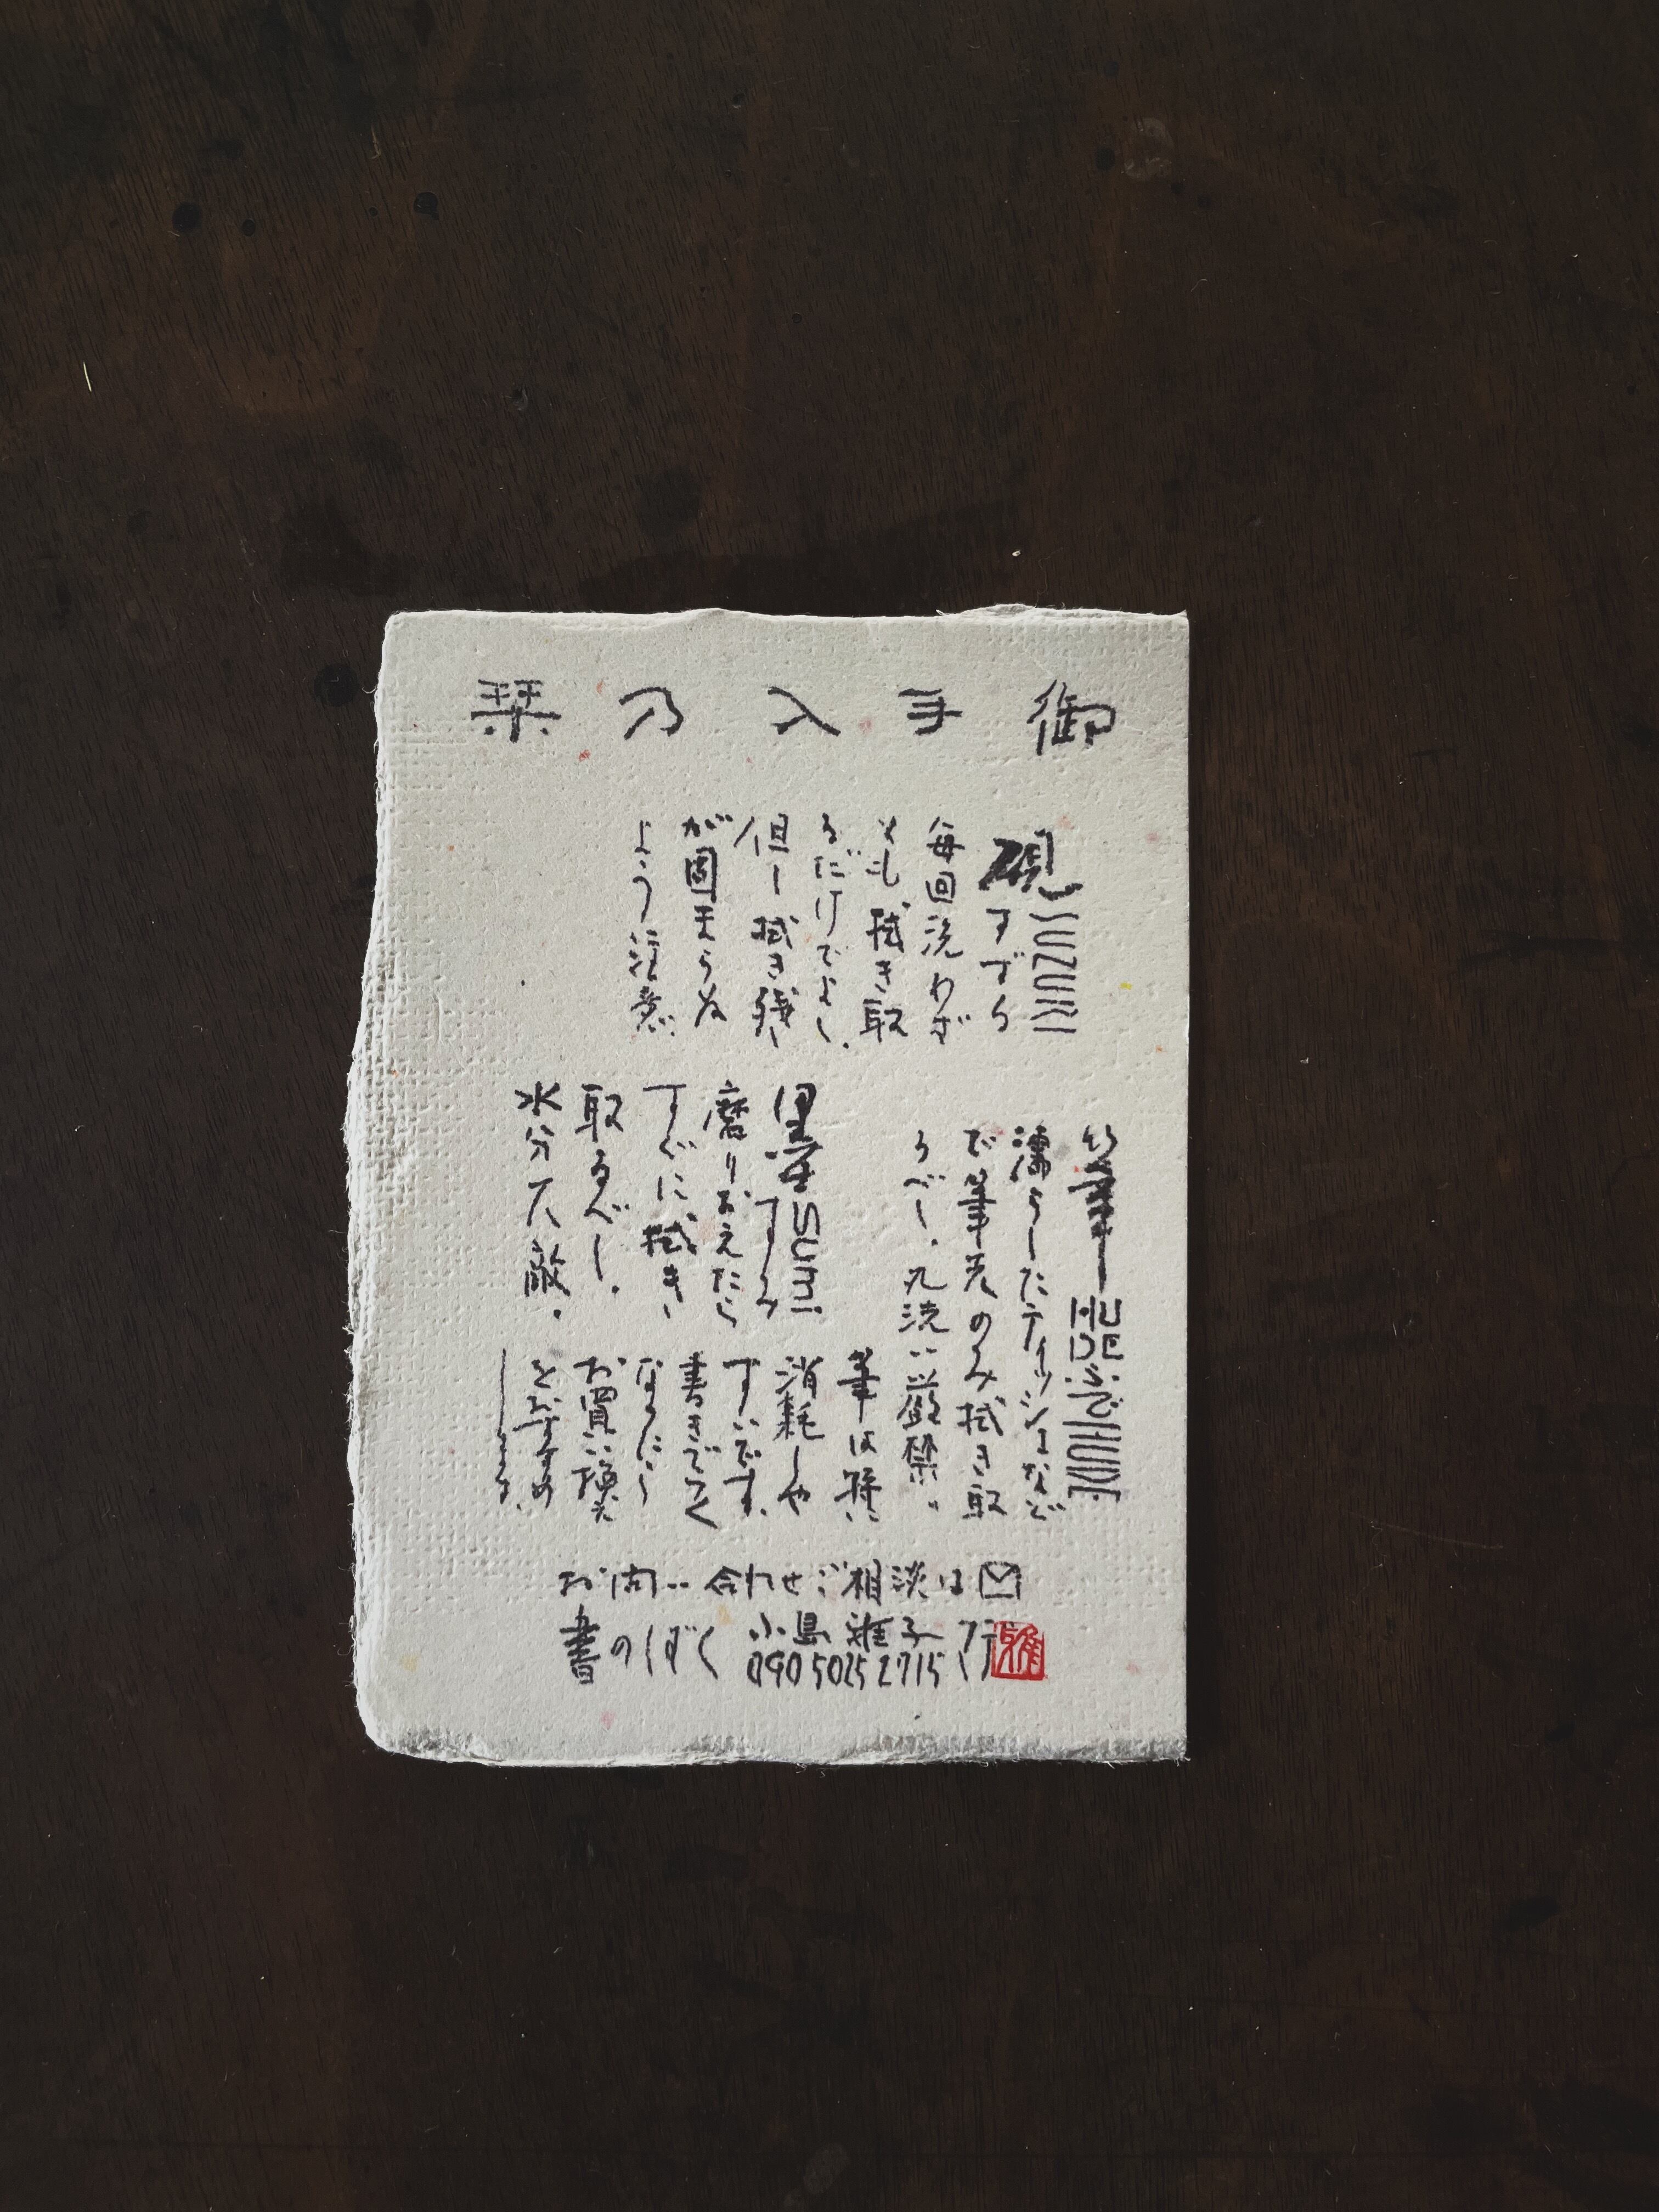 御手入乃栞
硯 SUZURI
すずり
毎回洗わず
とも拭き取
るだけでよし.
但し拭き残し
が固まらぬ
よう注意.
筆 HUDE ふで HUDE
濡らしたティッシュなど
で筆先のみ拭き取
るべし. 丸洗い厳禁.
墨 SUMI
すみ
磨りおえたら
すぐに拭き
取るべし.
水分大敵.
筆は特に
消耗しや
すいです.
書きにくく
なったら
お買い換え
をお奨め
します.
お問い合わせご相談は
書のばく 小島雅子 行
090 5025 2715
雅